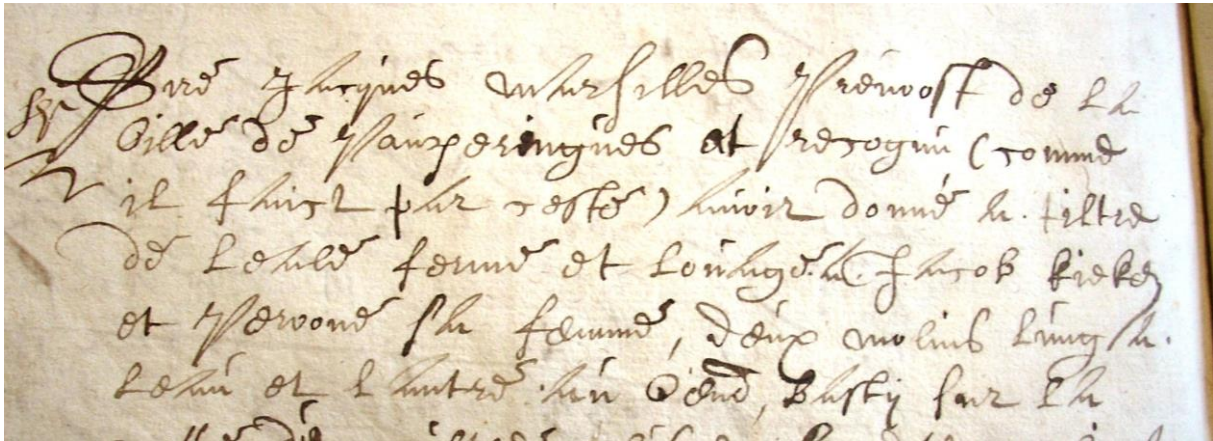 Sire Jacques Marsilles Prevoost de la
Ville de Paupperingues at recognu (comme
il faict par ceste) avoir donné a tiltre
de leale ferme et louage a Jacob Kieken
et Peroone sa femme, deux molins lung a
leau et lautre au vend, basty sur la